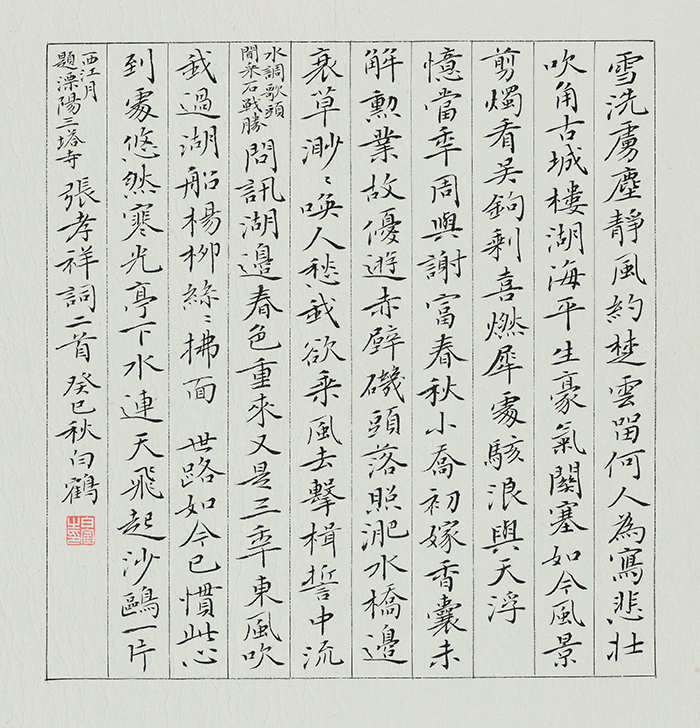 雪洗虜塵靜風約楚雲留何人為寫悲壯
吹角古城樓湖海平生豪氣關塞如今風景
剪燭看吳鉤剩喜燃犀處駭浪與天浮
憶當秊周與謝富春秋小喬初嫁香囊未
解勳業故優遊赤壁磯頭落照淝水橋邊
衰草渺〻喚人愁我欲乘風去擊楫誓中流
水調歌頭
聞采石戰勝
問訊湖邊春色重來又是三秊東風吹
我過湖船楊柳絲〻拂面 世路如今已慣此心
到處悠然寒光亭下水連天飛起沙鷗一片
西江月
題溧陽三塔寺
張孝祥詞二首 癸巳秋白鶴